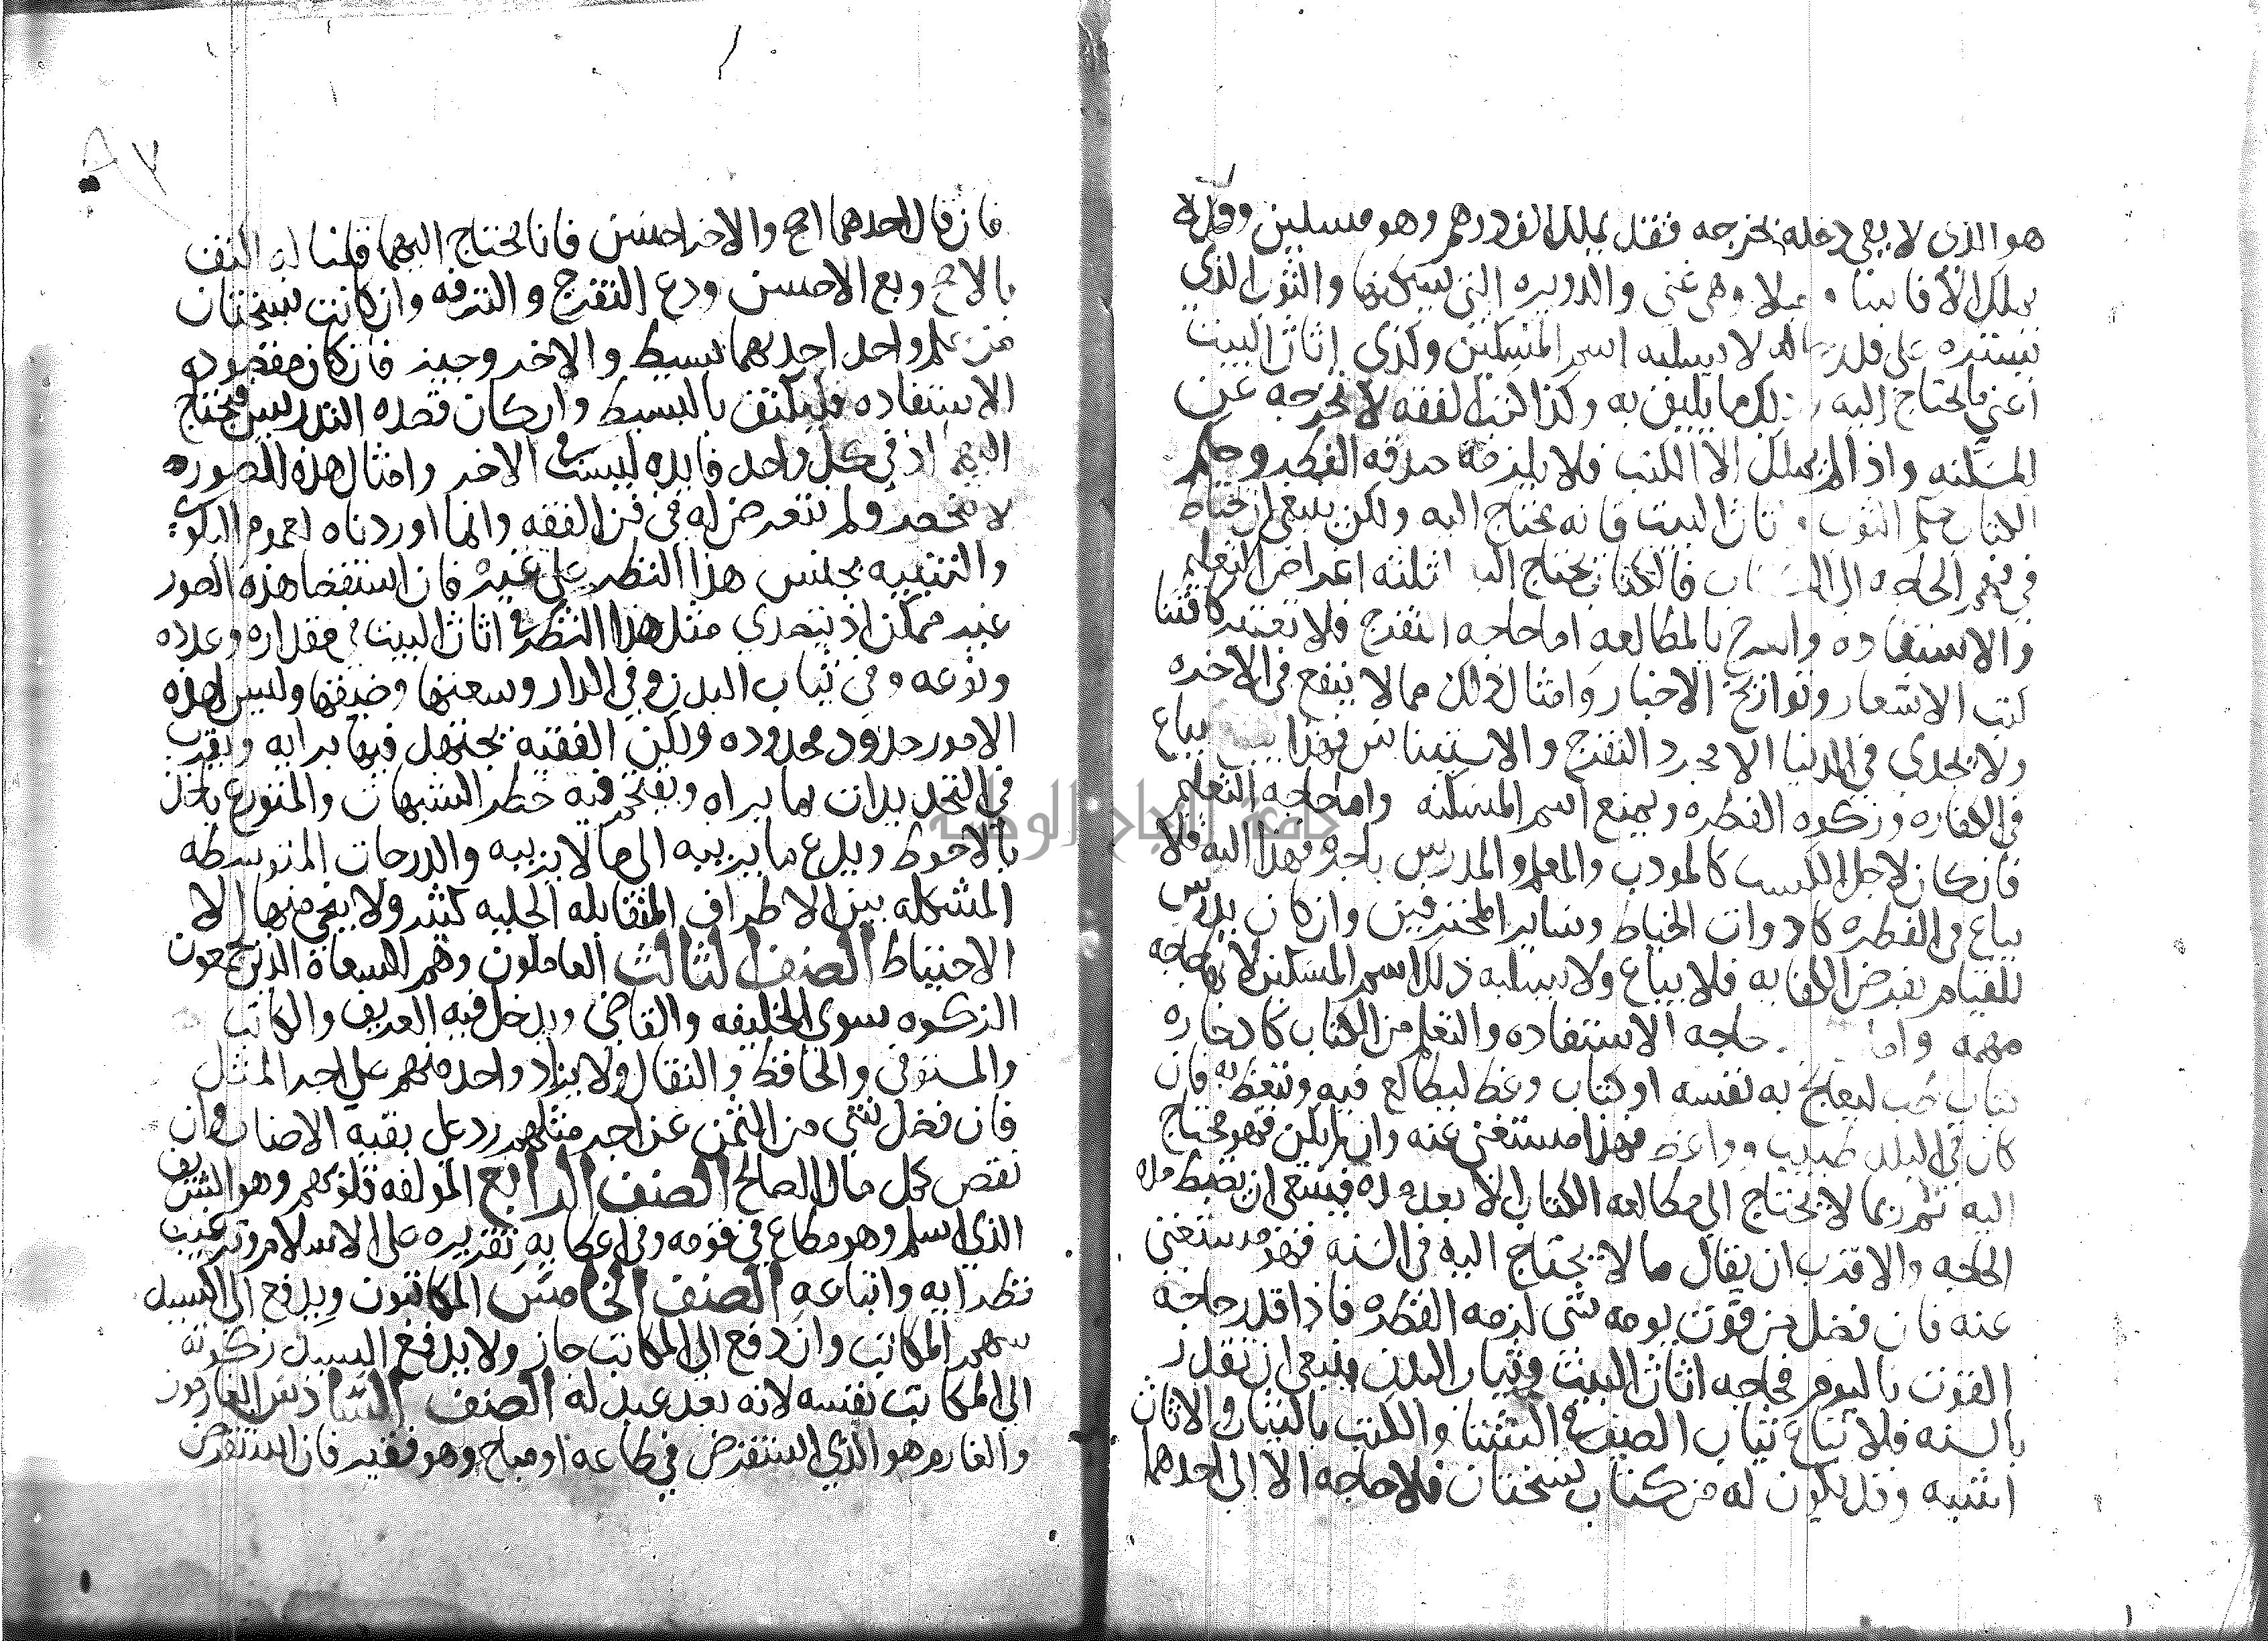 هو الذي لا يفي دخله بخرجه فقد يملك الف درهم وهو مسكين وقد لا
يملك الا فاسا و حبلا وهو غني والدويره التي يسكنها والثوب الذي
يستره على قدر حاله لا يسلبه اسم المسكين وكذى اثاث البيت
اعني ما يحتاج اليه و ذلك ما يليق به وكذا كتب الفقه لا تخرجه عن
المسكنه واذا لم يملك الا الكتب فلا يلزمه صدقه الفطر وحكم
الكتاب حكم الثوب و اثاث البيت فانه يحتاج اليه ولكن ينبغي ان يحتاط
في فهم الحاجه الى الكتاب فالكتاب يحتاج اليه لثلثه اغراض التعليم
والاستفاده والتفرج بالمطالعه اما حاجه التفرج فلا تعتبر كاقتنا
كتب الاشعار وتواريخ الاخبار وامثال ذلك مما لا ينفع في الاخره
ولا يجدي في الدنيا الا مجرد التفرج والاستيناس فهذا يباع
في الكفاره وزكوه الفطره ويمنع اسم المسكنه واما حاجه التعليم
فان كان لاجل الكسب كالمودب والمعلم والمدرس باجره فهذا اليه فلا
يباع في الفطره كادوات الخياط وساير المحترفين وان كان يدرس
للقيام بفرض الكفايه فلا يباع ولا يسلبه ذلك اسم المسكين لانها حاجه
مهمه واما حاجه الاستفاده والتعلم من الكتاب كادخاره
كتاب طب ليعالج به نفسه او كتاب وعظ ليطالع فيه ويتعظ به فان
كان في البلد طبيب وواعظ فهذا مستغنى عنه وان لم يكن فهو محتاج
اليه ثم ربما لا يحتاج الى مطالعه الكتاب الا بعد مده فينبغي ان يضبط مده
الحاجه والاقرب ان يقال ما لا يحتاج اليه في السنه فهو مستغنى
عنه فان فضل من قوت يومه شي لزمه الفطره فاذا قدر حاجه
القوت باليوم فحاجه اثاث البيت وثياب البدن ينبغي ان تقدر
بالسنه فلا تباع ثياب الصيف في الشتا والكتب بالثياب والاثاث
اشبه وقد يكون له من كتاب نسختان فلا حاجه الا الى احدهما
٨٧
فان قال احدهما اصح والاخر احسن فانا محتاج اليهما قلنا له اكتف
بالاصح وبع الاحسن ودع التفرج والترفه وان كانت نسختان
من علم واحد احدهما بسيط والاخر وجيز فان كان مقصوده
الاستفاده فليكتف بالبسيط وان كان قصده التدريس فيحتاج
اليهما اذ في كل واحد فايده ليست في الاخر وامثال هذه الصوره
لا تنحصر ولم نتعرض له في فن الفقه وانما اوردناه لعموم البلوى
والتنبيه بجنس هذا النظر على غيره فان استقصا هذه الصور
غير ممكن اذ يتعدي مثل هذا النظر في اثاث البيت في مقداره وعدده
ونوعه وفي ثياب البدن وفي الدار وسعتها وضيقها وليس لهذه
الامور حدود محدوده ولكن الفقيه يجتهد فيها برايه ويقرب
في التحديدات بما يراه ويقتحم فيه خطر الشبهات والمتورع ياخذ
بالاحوط ويدع ما يريبه الى ما لا يريبه والدرجات المتوسطه
المشكله بين الاطراف المتقابله الجليه كثير ولا ينجي منها الا
الاحتياط الصنف الثالث العاملون وهم السعاة الذين يجمعون
الزكوه سوى الخليفه والقاضي ويدخل فيه العريف والكاتب
والمستوفي والحافظ والنقال ولا يزاد واحد منهم على اجر المثل
فان فضل شي من الثمن عن اجر مثلهم رد على بقيه الاصناف وان
نقص كمل من مال المصالح الصنف الرابع المولفه قلوبهم وهو الشريف
الذي اسلم وهو مطاع في قومه وفي اعطايه تقريره على الاسلام وترغيب
نظرايه واتباعه الصنف الخامس المكاتبون ويدفع الى السيد
سهم المكاتب وان دفع الى المكاتب جاز ولا يدفع السيد زكوته
الى المكاتب نفسه لانه يعد عبد له الصنف السادس الغارمون
والغارم هو الذي استقرض في طاعه او مباح وهو فقير فان استقرض